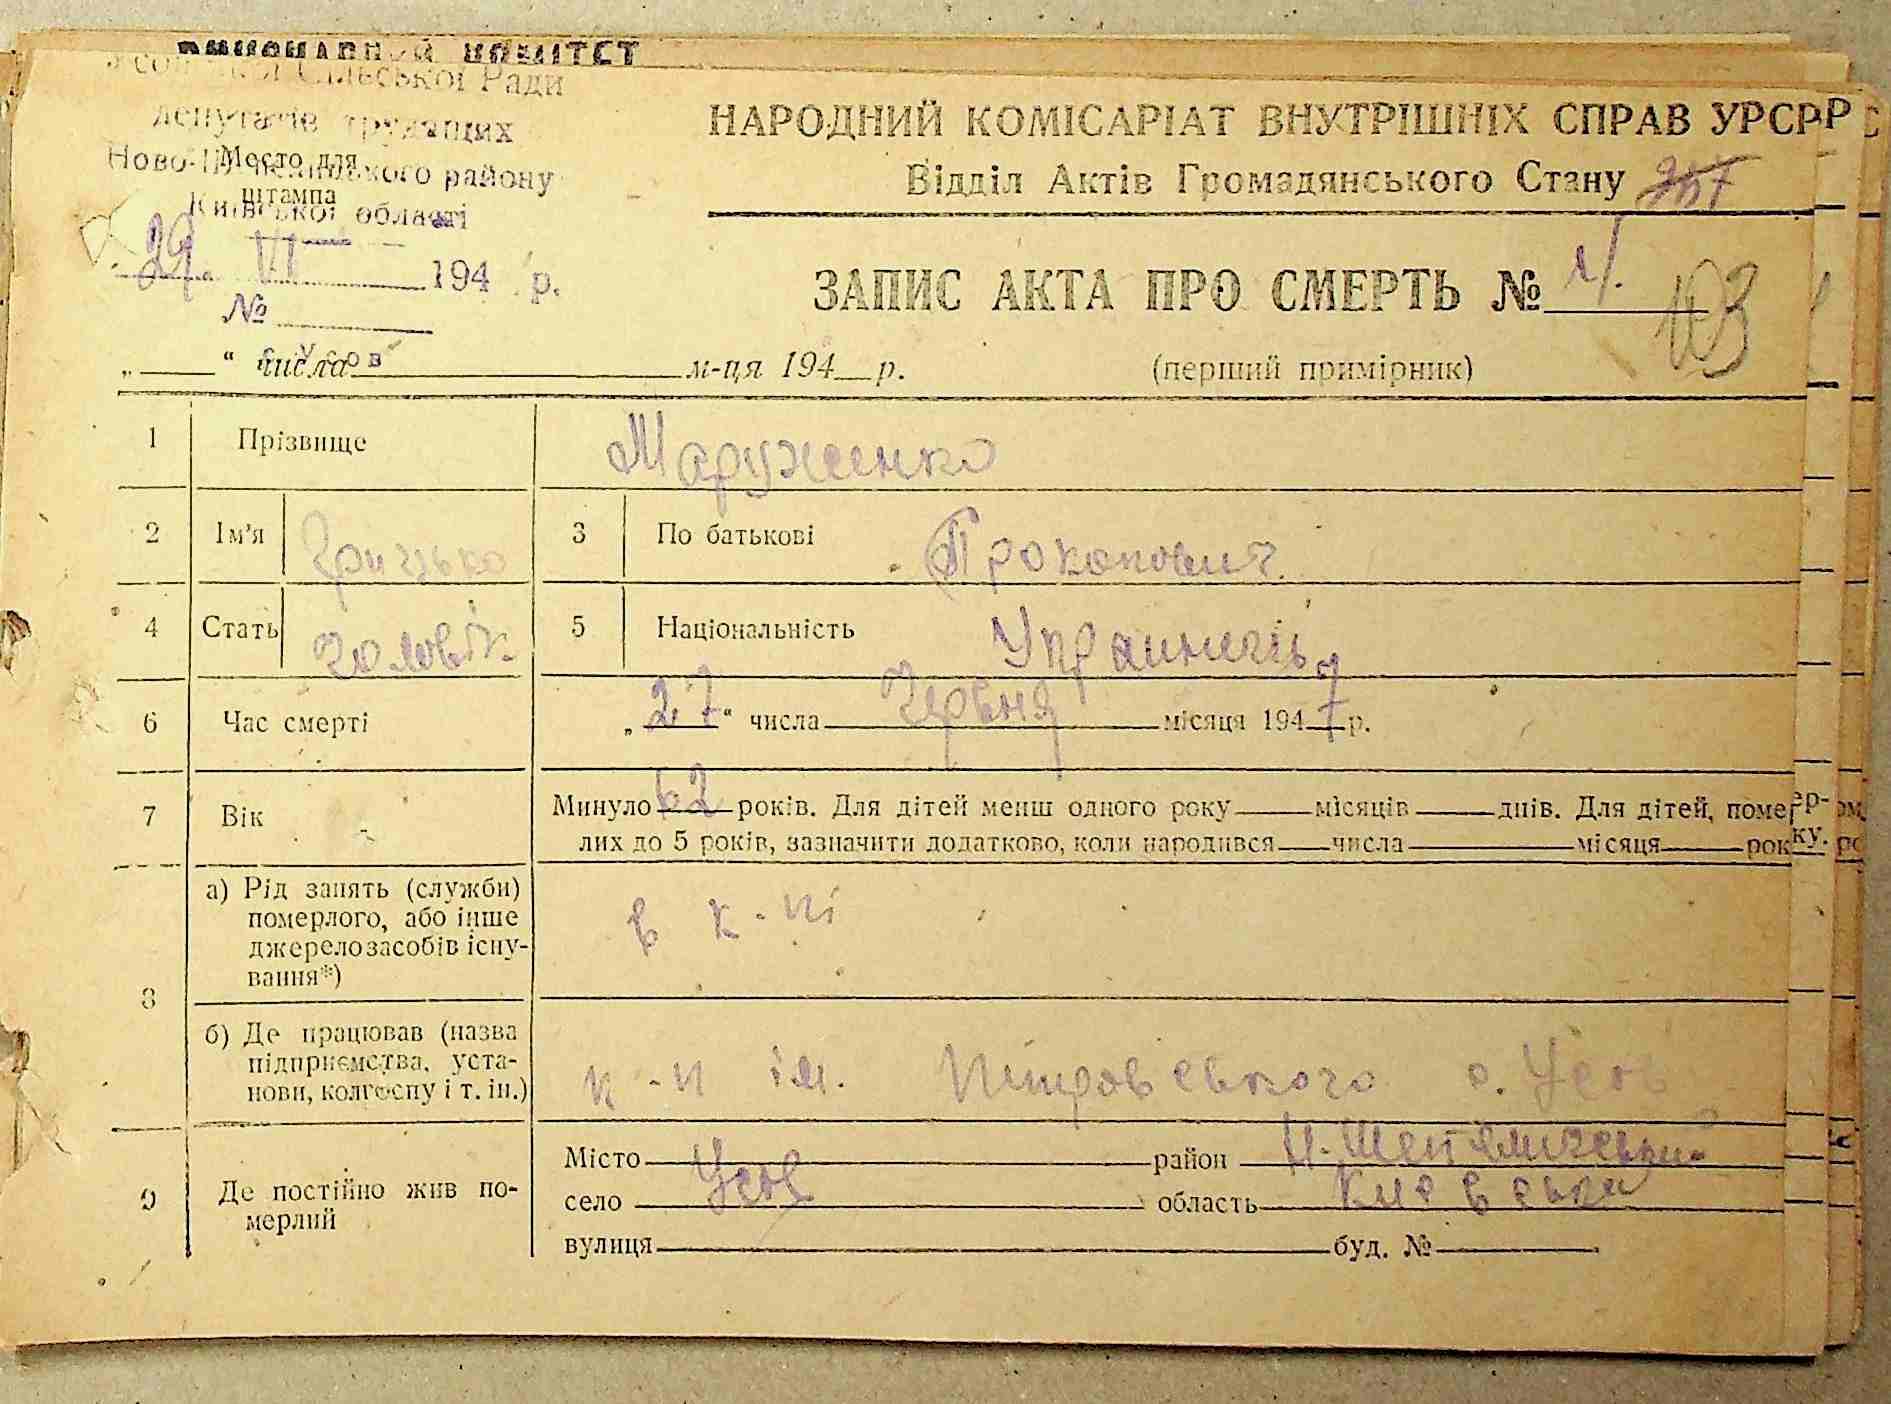 ВИКОНАВЧИЙ КОМІТЕТ
Сільської Ради
депутатів трудящих
НАРОДНИЙ КОМІСАРІАТ ВНУТРІШНІХ СПРАВ УРСР
Место для
Ново- району
штампа
Відділ Актів Громадянського Стану 367
Київської області
29 VI 194 р.
ЗАПИС АКТА ПРО СМЕРТЬ №
103
№
„ “ числа м-ця 194 р. (перший примірник)
1 Прізвище Маруженко
2 Ім'я Грицько 3 По батькові Прокопович
4 Стать чоловік 5 Національність Украинець
6 Час смерті „27“ числа Червня місяця 1947 р.
7 Вік Минуло 62 років. Для дітей менш одного року місяців днів. Для дітей, помер-
лих до 5 років, зазначити додатково, коли народився числа місяця року.
8 а) Рід занять (служби)
померлого, або інше
джерело засобів існу-
вання*)
в к-пі
б) Де працював (назва
підприємства, уста-
нови, колгоспу і т. ін.)
к-п ім. Петровського с.
9 Де постійно жив по-
мерлий
Місто район
село область Киевська
вулиця буд. №